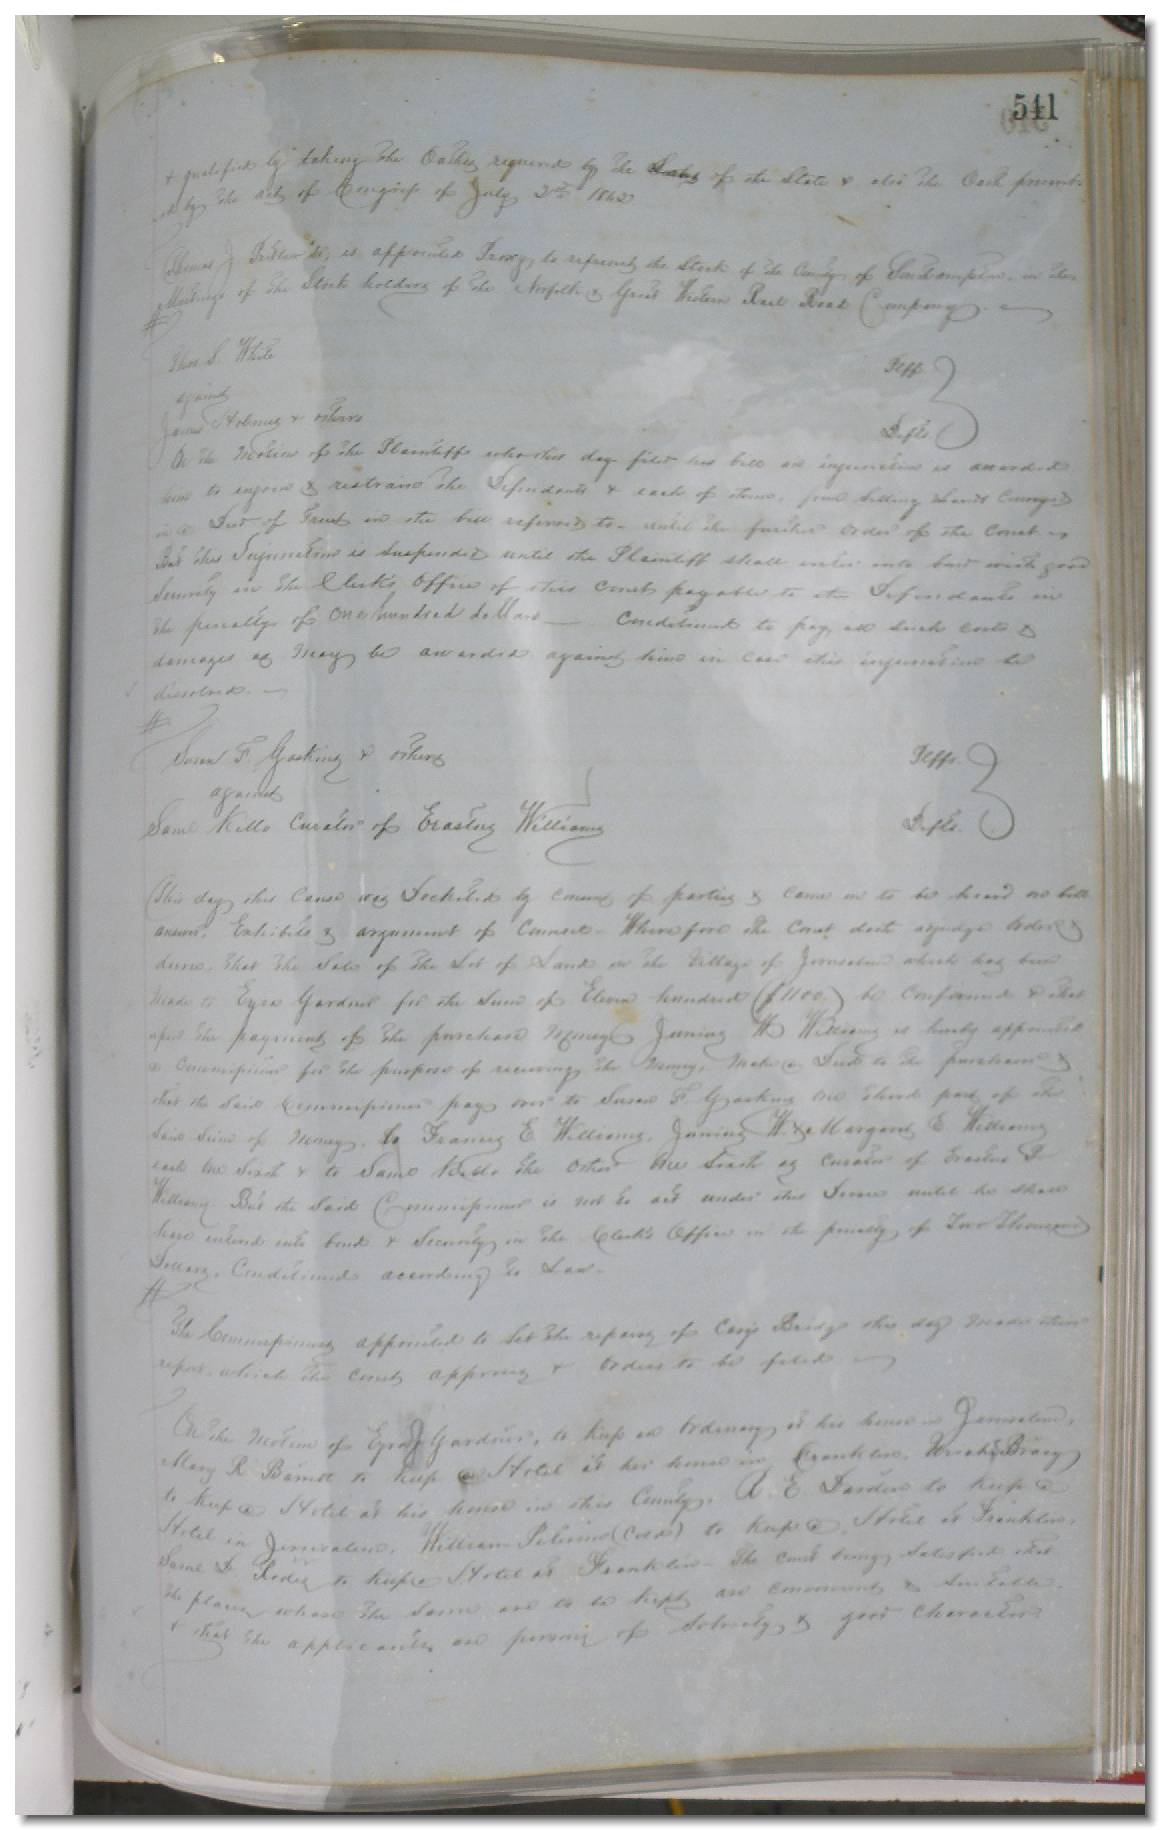 541
& qualified by taking the Oathes required by the Laws of the State & also the Oath prescrib
ed by the act of Congress of July 2nd 1862
Thomas J Pretlow is appointed Proxy, to represent the Stock of the County of Southampton, in the
Meetings of the Stock holders of the Norfolk & Great Western Rail Road Company.
Thos S. White Plff
against
James Holmes & others Defts.
On the Motion of the Plaintiff who this day filed his bill an injunction is awarded
him to enjoin & restrain the Defendants & each of them, from Selling Lands Conveyed
in a Deed of Trust in the bill referred to - until the further order of the Court
But this Injunction is Suspended until the Plaintiff shall enter into bond with good
Security in the Clerk's Office of this Court payable to the Defendants in
the penalty of One hundred dollars Conditioned to pay all such costs &
damages as May be awarded against him in case this injunction be
dissolved.
Susan F. Goskins & others Plffs.
against
Saml Kello Curator of Erastus Williams Defts.
This day this Cause was Docketed by consent of parties & came on to be heard on bill
answer, Exhibits & argument of Counsel - Wherefore the Court doth adjudge Order &
decree, that the Sale of the Lot of Land in the Village of Jerusalem which has been
Made to Ezra Gardner for the Sum of Eleven hundred ($1100.) be Confirmed & that
upon the payment of the purchase Money Junius W Williams is hereby appointed
a Commissioner for the purpose of receiving the Money, Make a Deed to the purchaser &
that the Said Commissioner pay over to Susan F. Goskins one third part of the
Said Sum of Money, to Francis E Williams, Junius W. & Margaret E. Williams
each One Sixth & to Saml Kello the Other One Sixth as Curator of Erastus
Williams But the Said Commissioner is not to act under this Decree until he shall
have entered into bond & Security in the Clerk's Office in the penalty of Two Thousand
Dollars, Conditioned according to Law.
The Commissioners appointed to let the repairs of Cary's Bridge this day made their
report, which the Court approves & Orders to be filed
On the Motion of Ezra J Gardner, to keep an Ordinary at his house in Jerusalem,
Mary R Barrett to keep a Hotel at her house in Franklin, Bracy
to keep a Hotel at his house in this County, A. E. Darden to keep a
Hotel in Jerusalem, William (Cold) to keep a Hotel at Franklin,
Saml D. to keep a Hotel at Franklin - The Court being Satisfied that
the places where the Same are to be kept are convenient & Suitable
& that the applicants are persons of Sobriety & good Character